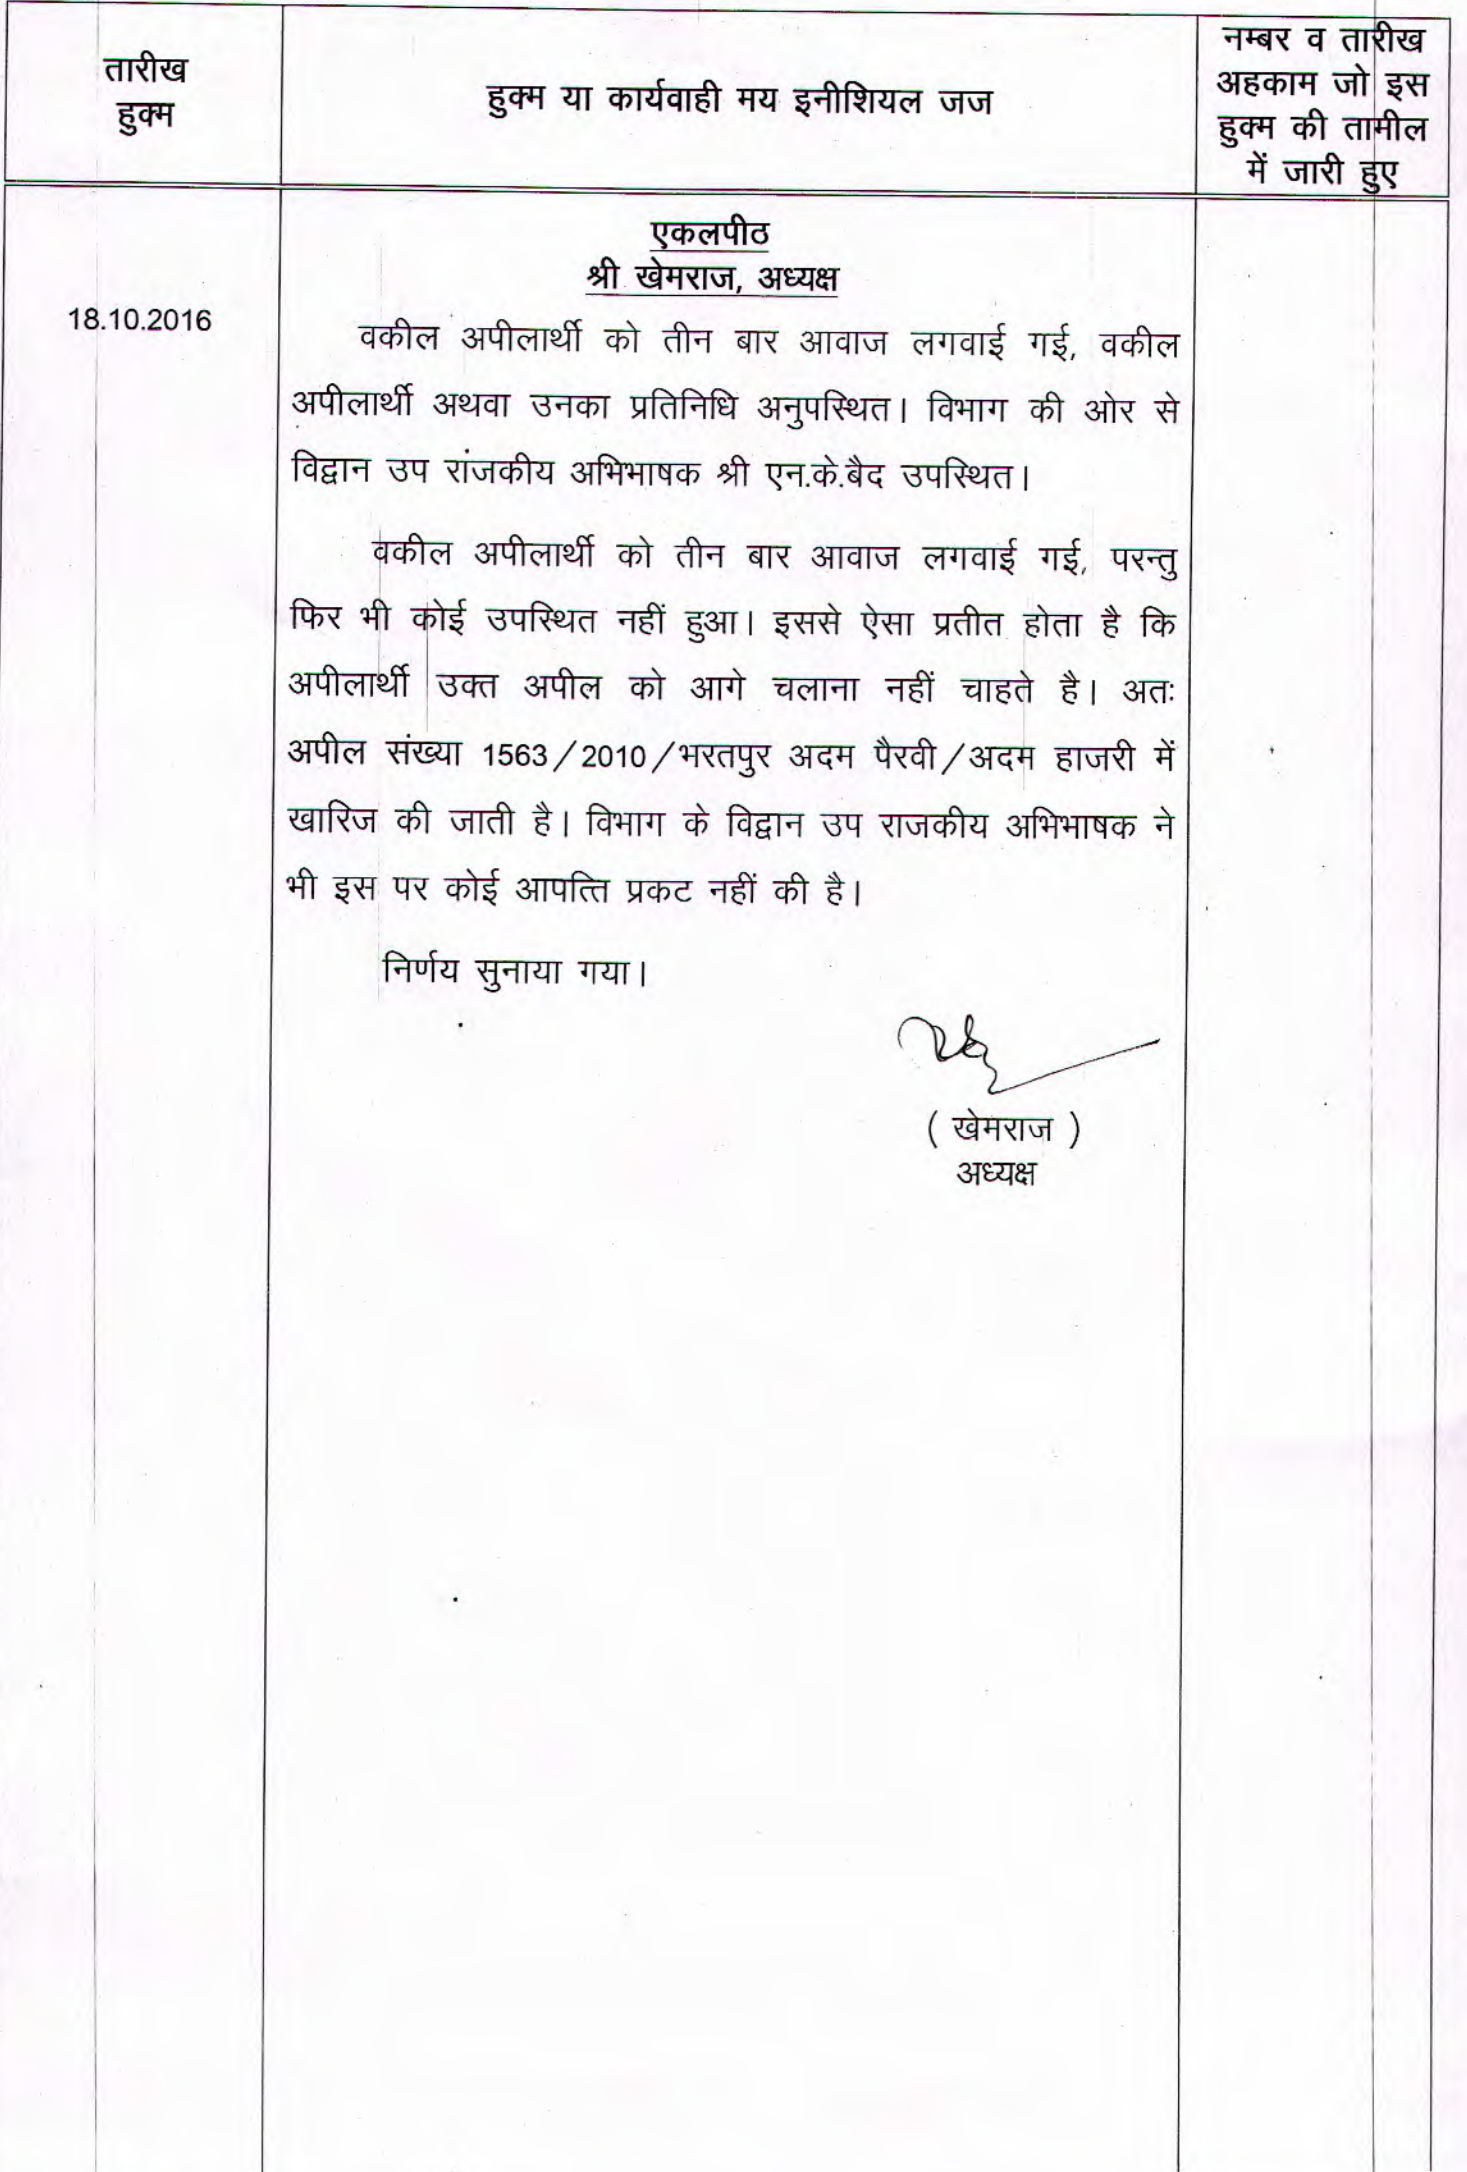 तारीख
हुक्म
हुक्म या कार्यवाही मय इनीशियल जज
नम्बर व तारीख
अहकाम जो इस
हुक्म की तामील
में जारी हुए
एकलपीठ
श्री खेमराज, अध्यक्ष
18.10.2016
वकील अपीलार्थी को तीन बार आवाज लगवाई गई, वकील
अपीलार्थी अथवा उनका प्रतिनिधि अनुपस्थित। विभाग की ओर से
विद्वान उप राजकीय अभिभाषक श्री एन.के.बैद उपस्थित।
वकील अपीलार्थी को तीन बार आवाज लगवाई गई, परन्तु
फिर भी कोई उपस्थित नहीं हुआ। इससे ऐसा प्रतीत होता है कि
अपीलार्थी उक्त अपील को आगे चलाना नहीं चाहते है। अतः
अपील संख्या 1563/2010/भरतपुर अदम पैरवी/अदम हाजरी में
खारिज की जाती है। विभाग के विद्वान उप राजकीय अभिभाषक ने
भी इस पर कोई आपत्ति प्रकट नहीं की है।
निर्णय सुनाया गया।
( खेमराज )
अध्यक्ष